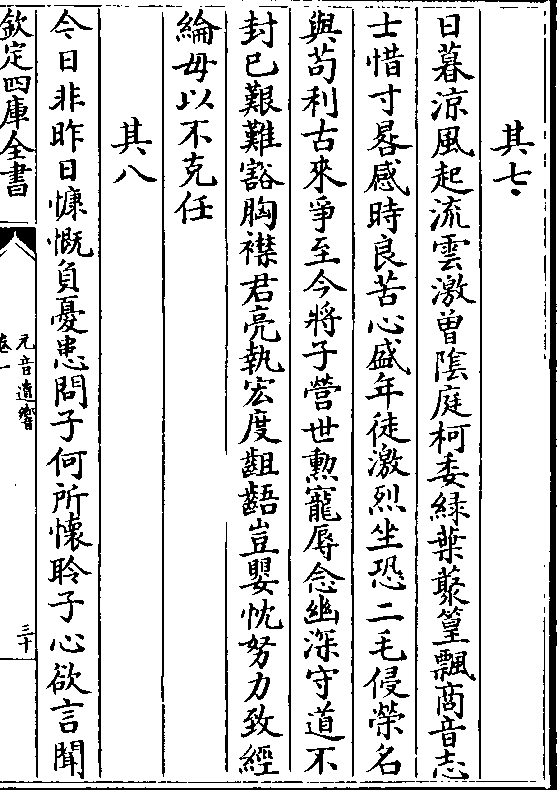 其七
日暮涼風起流雲激曽陰庭柯委緑葉藂篁飄商音志
士惜寸晷感時良苦心盛年徒激烈坐恐二毛侵榮名
與茍利古來爭至今將子營世勲寵辱念幽深守道不
封已艱難豁胸襟君亮執宏度齟齬豈嬰忱努力致經
綸毋以不克任
其八
今日非昨日慷慨負憂患問子何所懷聆子心欲言聞
欽定四庫全書
元音遺響
卷一
三十